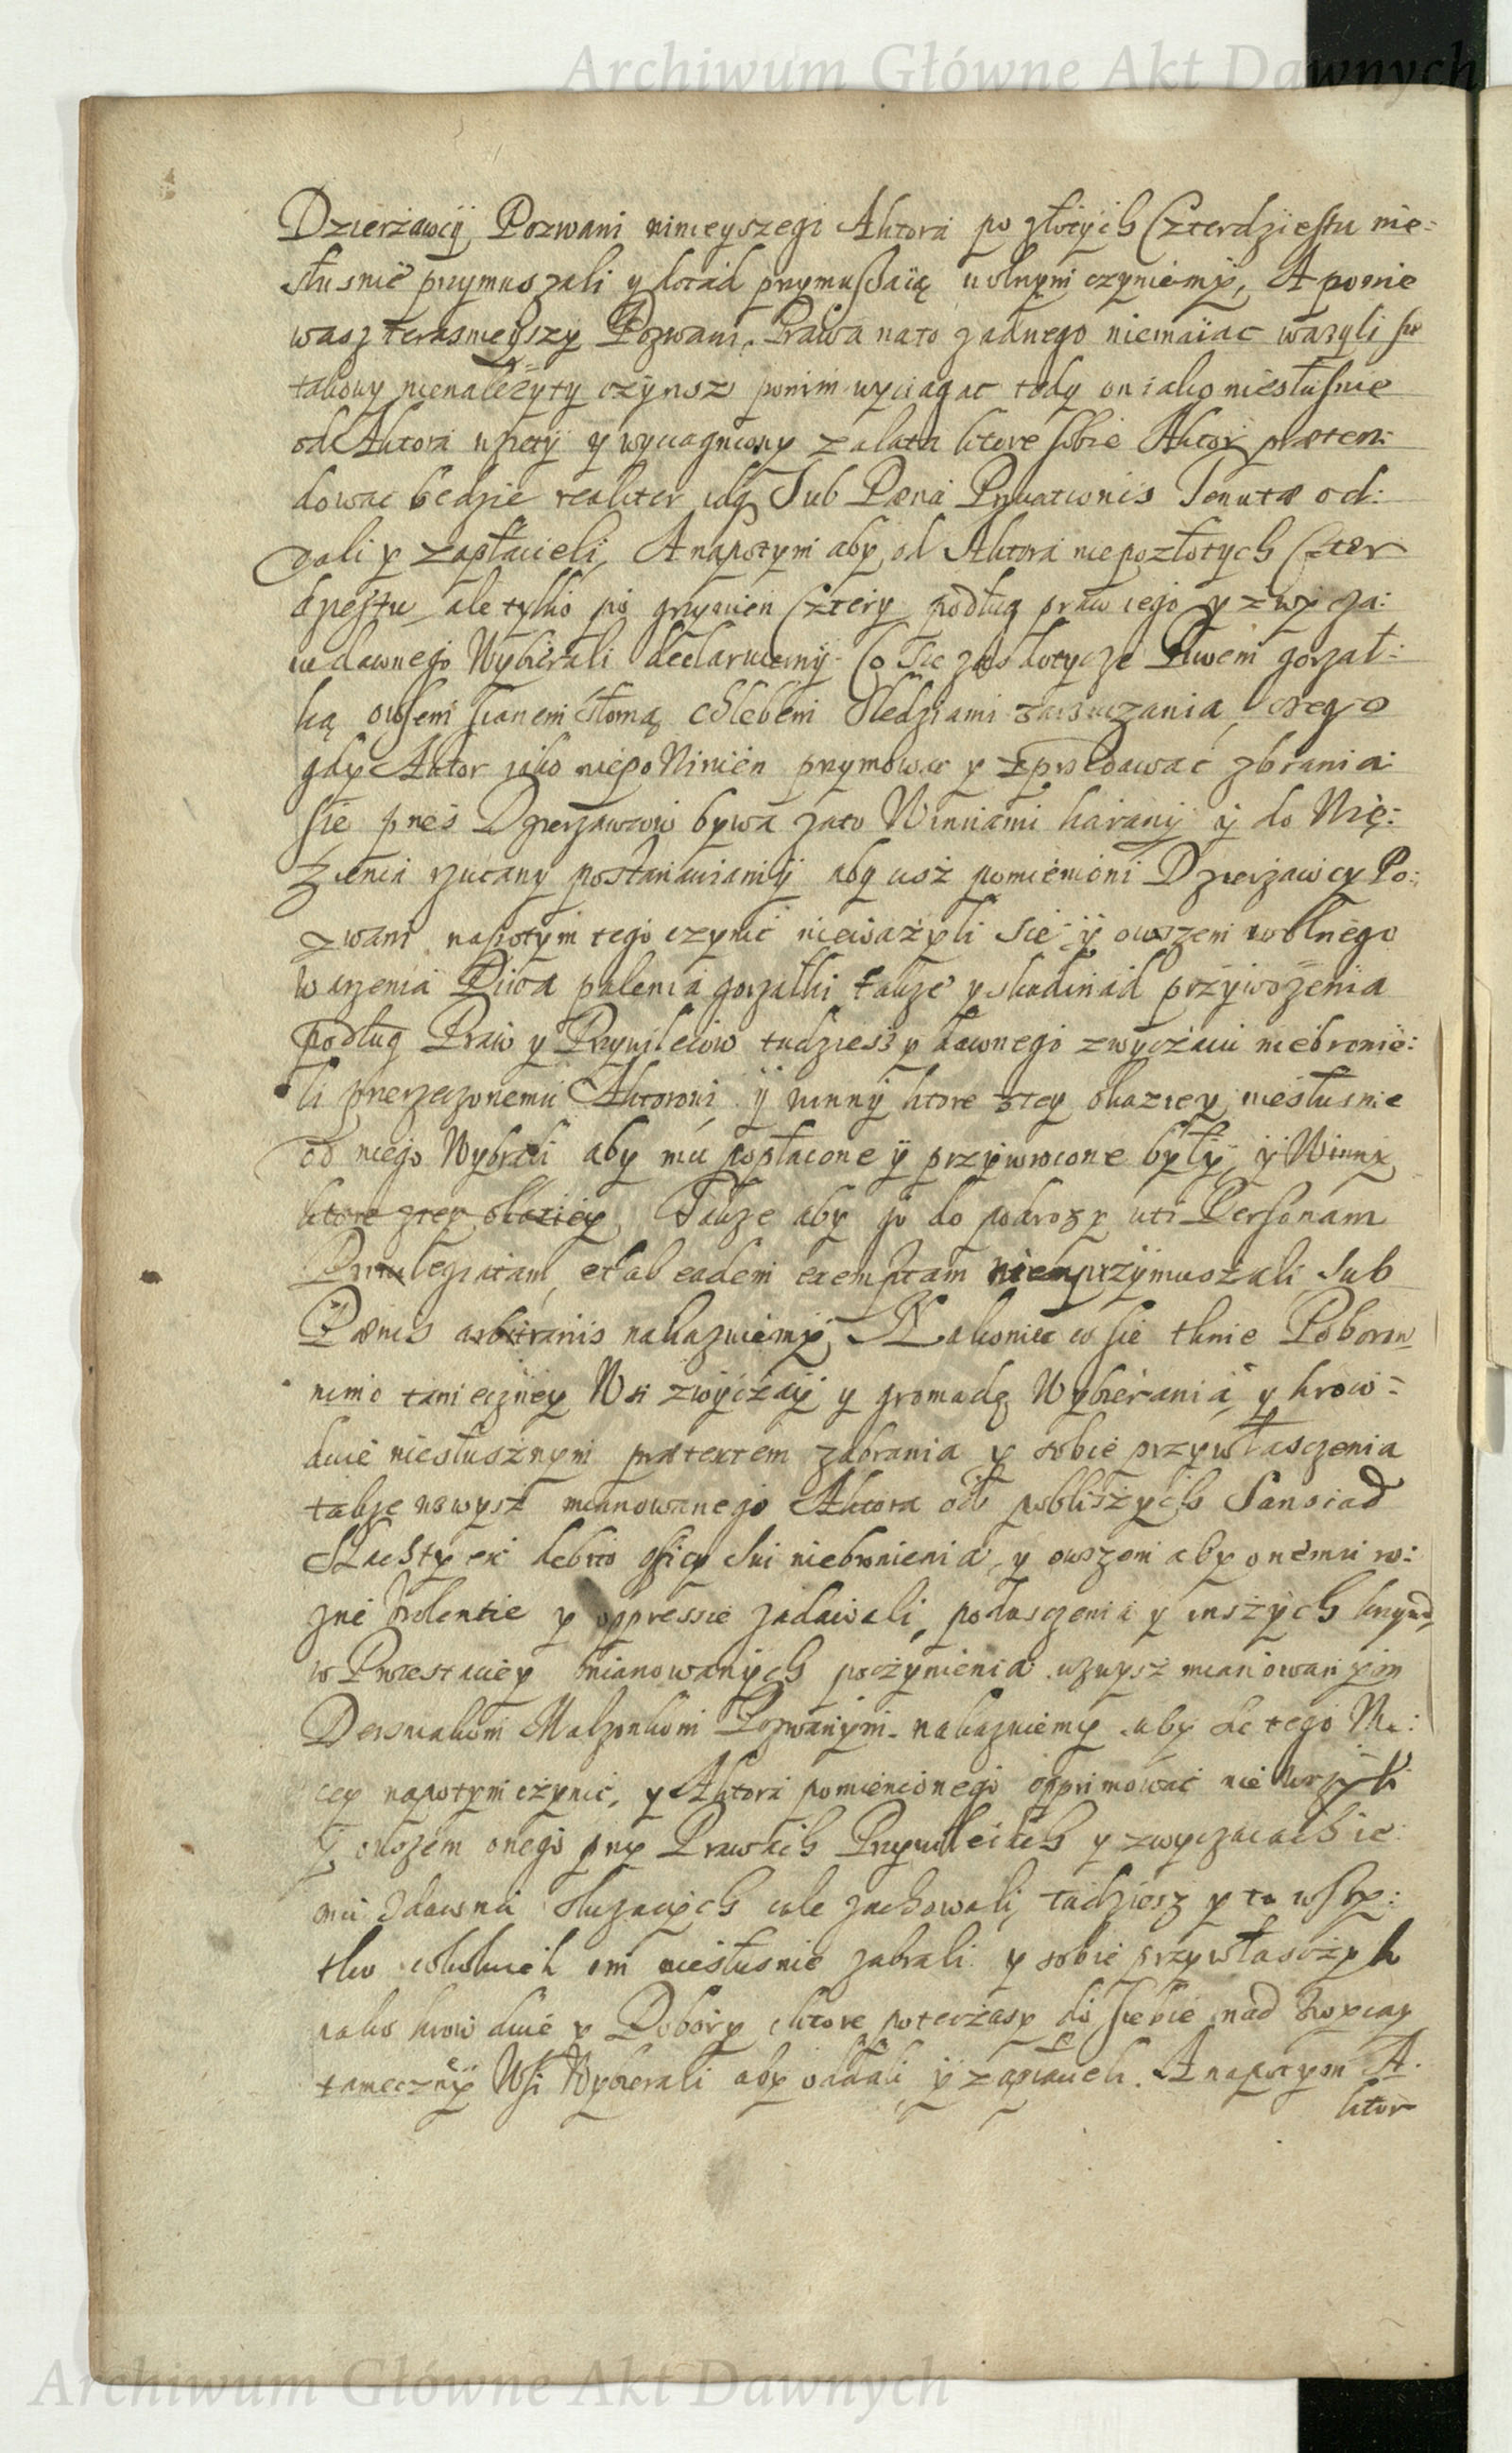 Archiwum Główne Akt Dawnych
Dzierzawcÿ Pozwani ninieyszego Aktora po złotÿch Czterdziestu nie-
słusnie przymuszali y dotąd przymuszaią uolnym czyniemÿ, A ponie
wasz terasnieyszy Pozwani Prawa nato zadnego niemaiac wazyli sie
takowy nienalezyty czÿnsz ponim wyciagac tedy on iako niesłusnie
od Aktora wzietÿ y wyciagniony za lata ktore sobie Aktor præten:
dowac bedzie realiter idq Sub Pæna Priuationis Tenutæ od:
dali y zapłacieli, A napotym aby od Aktora niepozłotych Czter
dziestu ale tylko po grzywien Cztery podług praw iego y zwycza:
iu dawnego Wybierali declaruiemÿ. Co sie zas dotycze Piwem gorzał:
ką owsem sianem słomą chlebem sledziami zarzucania czego
gdy Aktor iako niepoWinien przymowac y zprzedawać zbrania
sie przes Dzierzawcow bywa zato Winnami karanÿ ÿ do Wię:
zienia rzucany postanawiamÿ aby iusz pomienioni Dzierzawcy Po:
zwani napotym tego czynić nieważyli sie ÿ owszem wolnego
warzenia Piwa palenia gorzałki także y skadinąd przÿwożenia
podług Praw y Przywileiow tudziesz y dawnego zwyczaiu niebronie:
li przerzeczonemu Aktorowi ÿ winnÿ ktore ztey okaziey niesłusnie
od niego Wybrali aby mu popłacone ÿ przywrocone byłÿ ÿ Winny
ktore ztey okaziey, Takze aby go do podrozy uti Personam
Priuilegiatam, et ab eadem exemptam nieprzÿmuszali sub
Pænis arbitrariis nakazuiemÿ, Nakoniec co sie tknie Poborow
mimo tameczney Wsi zwÿczaÿ y gromadę Wybierania y krow
dwie niesłusznym prætextem zabrania y sobie przywłasczenia
takze wawysz mianowanego Aktora od pobliszych Sansiad
Szlachty niebronienia y owszem aby onemu ro:
zne violentie y oppressie zadawali, podusczenia y inszych krzywd
w Protestaciey mianowanych poczynienia wzwysz mianowanym
Małzonkom Pozwanÿm nakazuiemy aby sie tego Wie:
cey napotym czynić, y Aktora pomienionego opprimować nie wazyli
ÿ owszem onego przy Prawach Przywileiach y zwyczaiach ie:
mu zdawna słuzacych cale zachowali, tudziesz y to wszy:
tko cokolwiek em niesłusnie zabrali y sobie przywłasczyli
iako krow dwie y Pobory ktore poterzasy do siebie nad zwyczay
tameczney Wsi Wybierali aby oddali ÿ zapłacieli. A napotym A.
ktor
Archiwum Główne Akt Dawnych